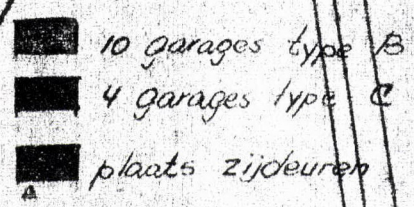 10 garages type B
4 garages type C
plaats zijdeuren